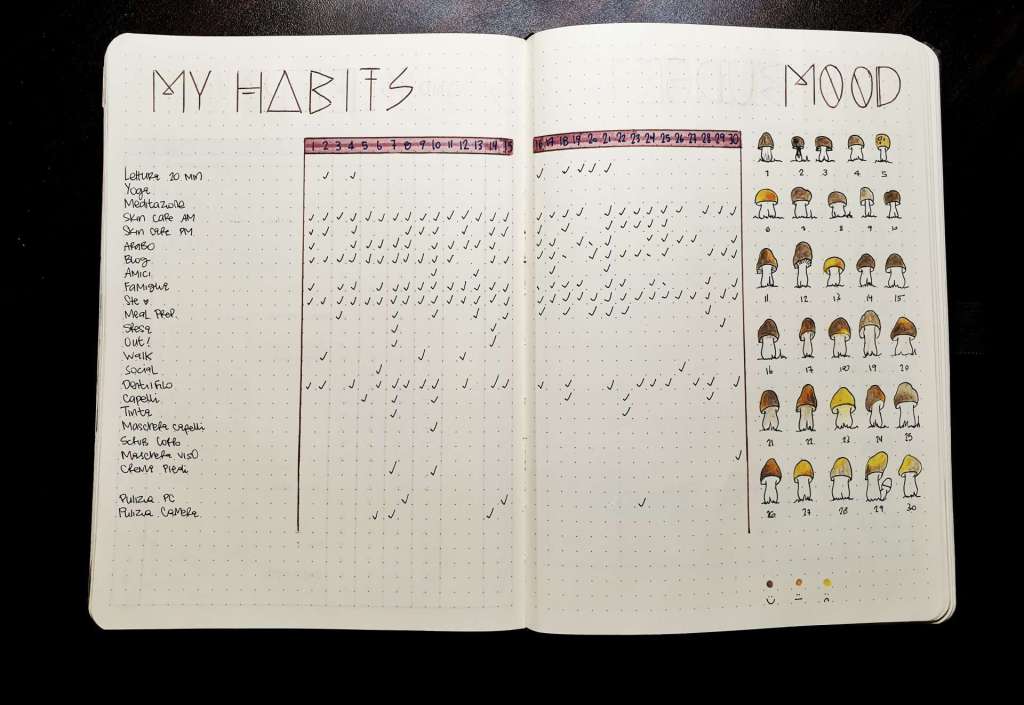 MY HABITS
MOOD
1 2 3 4 5 6 7 8 9 10 11 12 13 14 15
16 17 18 19 20 21 22 23 24 25 26 27 28 29 30
Lettura 20 min
Yoga
Meditazione
Skin care AM
Skin care PM
Arabo
Blog
Amici
Famiglia
Ste ♥
Meal Prep.
Spesa
Out!
Walk
Social
Dentil Filo
Capelli
Tinta
Maschera capelli
Scrub Corpo
Maschera viso
Crema Piedi
Pulizia PC
Pulizia Camera
1 2 3 4 5
6 7 8 9 10
11 12 13 14 15
16 17 18 19 20
21 22 23 24 25
26 27 28 29 30